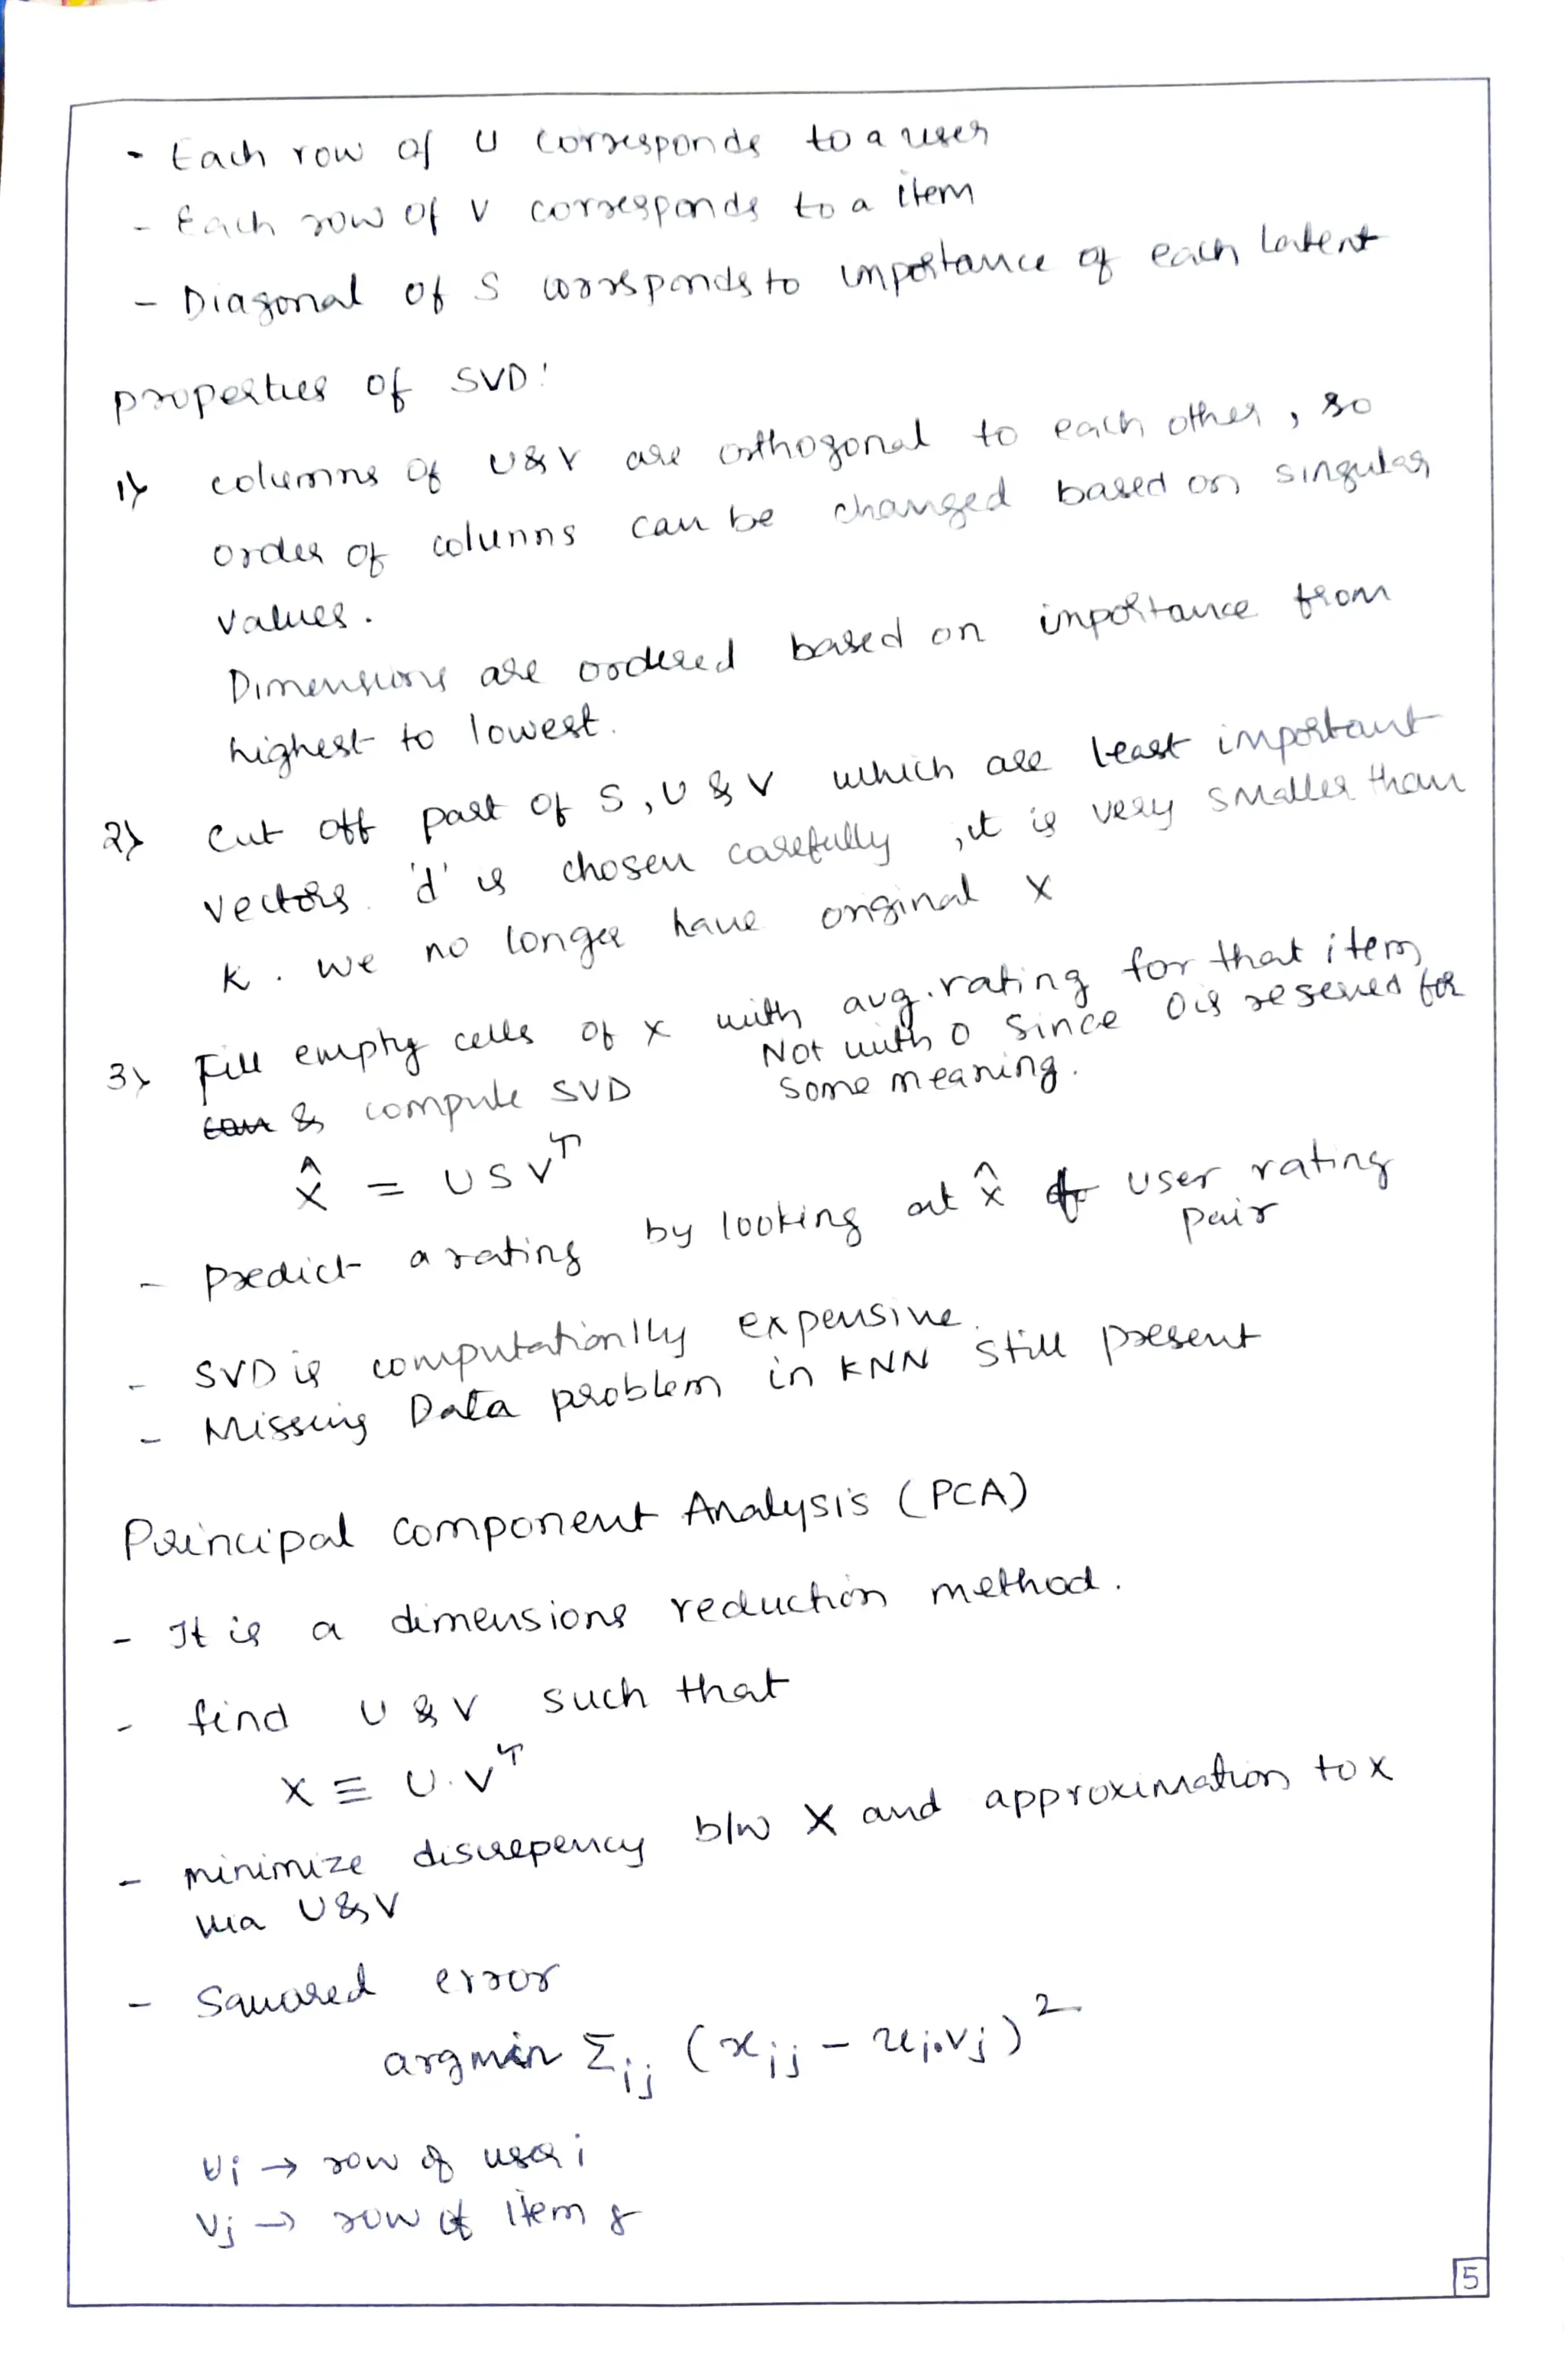 - Each row of U corresponds to a user
- Each row of V corresponds to a item
- Diagonal of S corrsponds to importance of each latent
properties of SVD:
1) columns of U & V are orthogonal to each other, so
order of columns can be changed based on singular
values.
Dimensions are ordered based on importance from
highest to lowest.
2) Cut off part of S, U & V which are least important
vectors. 'd' is chosen carefully, it is very smaller than
K. We no longer have original X
3) Fill empty cells of X with avg. rating for that item
Not with 0 since 0 is reserved for
& compute SVD some meaning.
X̂ = U S Vᵀ
- Predict a rating by looking at X̂ user rating
pair
- SVD is computationlly expensive.
- Missing Data problem in KNN still present
Principal component Analysis (PCA)
- It is a dimensions reduction method.
- find U & V such that
X ≡ U.Vᵀ
- minimize discrepency b/w X and approximation to X
via U & V
- Squared error
argmin Σij (xij - ui.vj)²
Ui → row of user i
Vj → row of item j
5